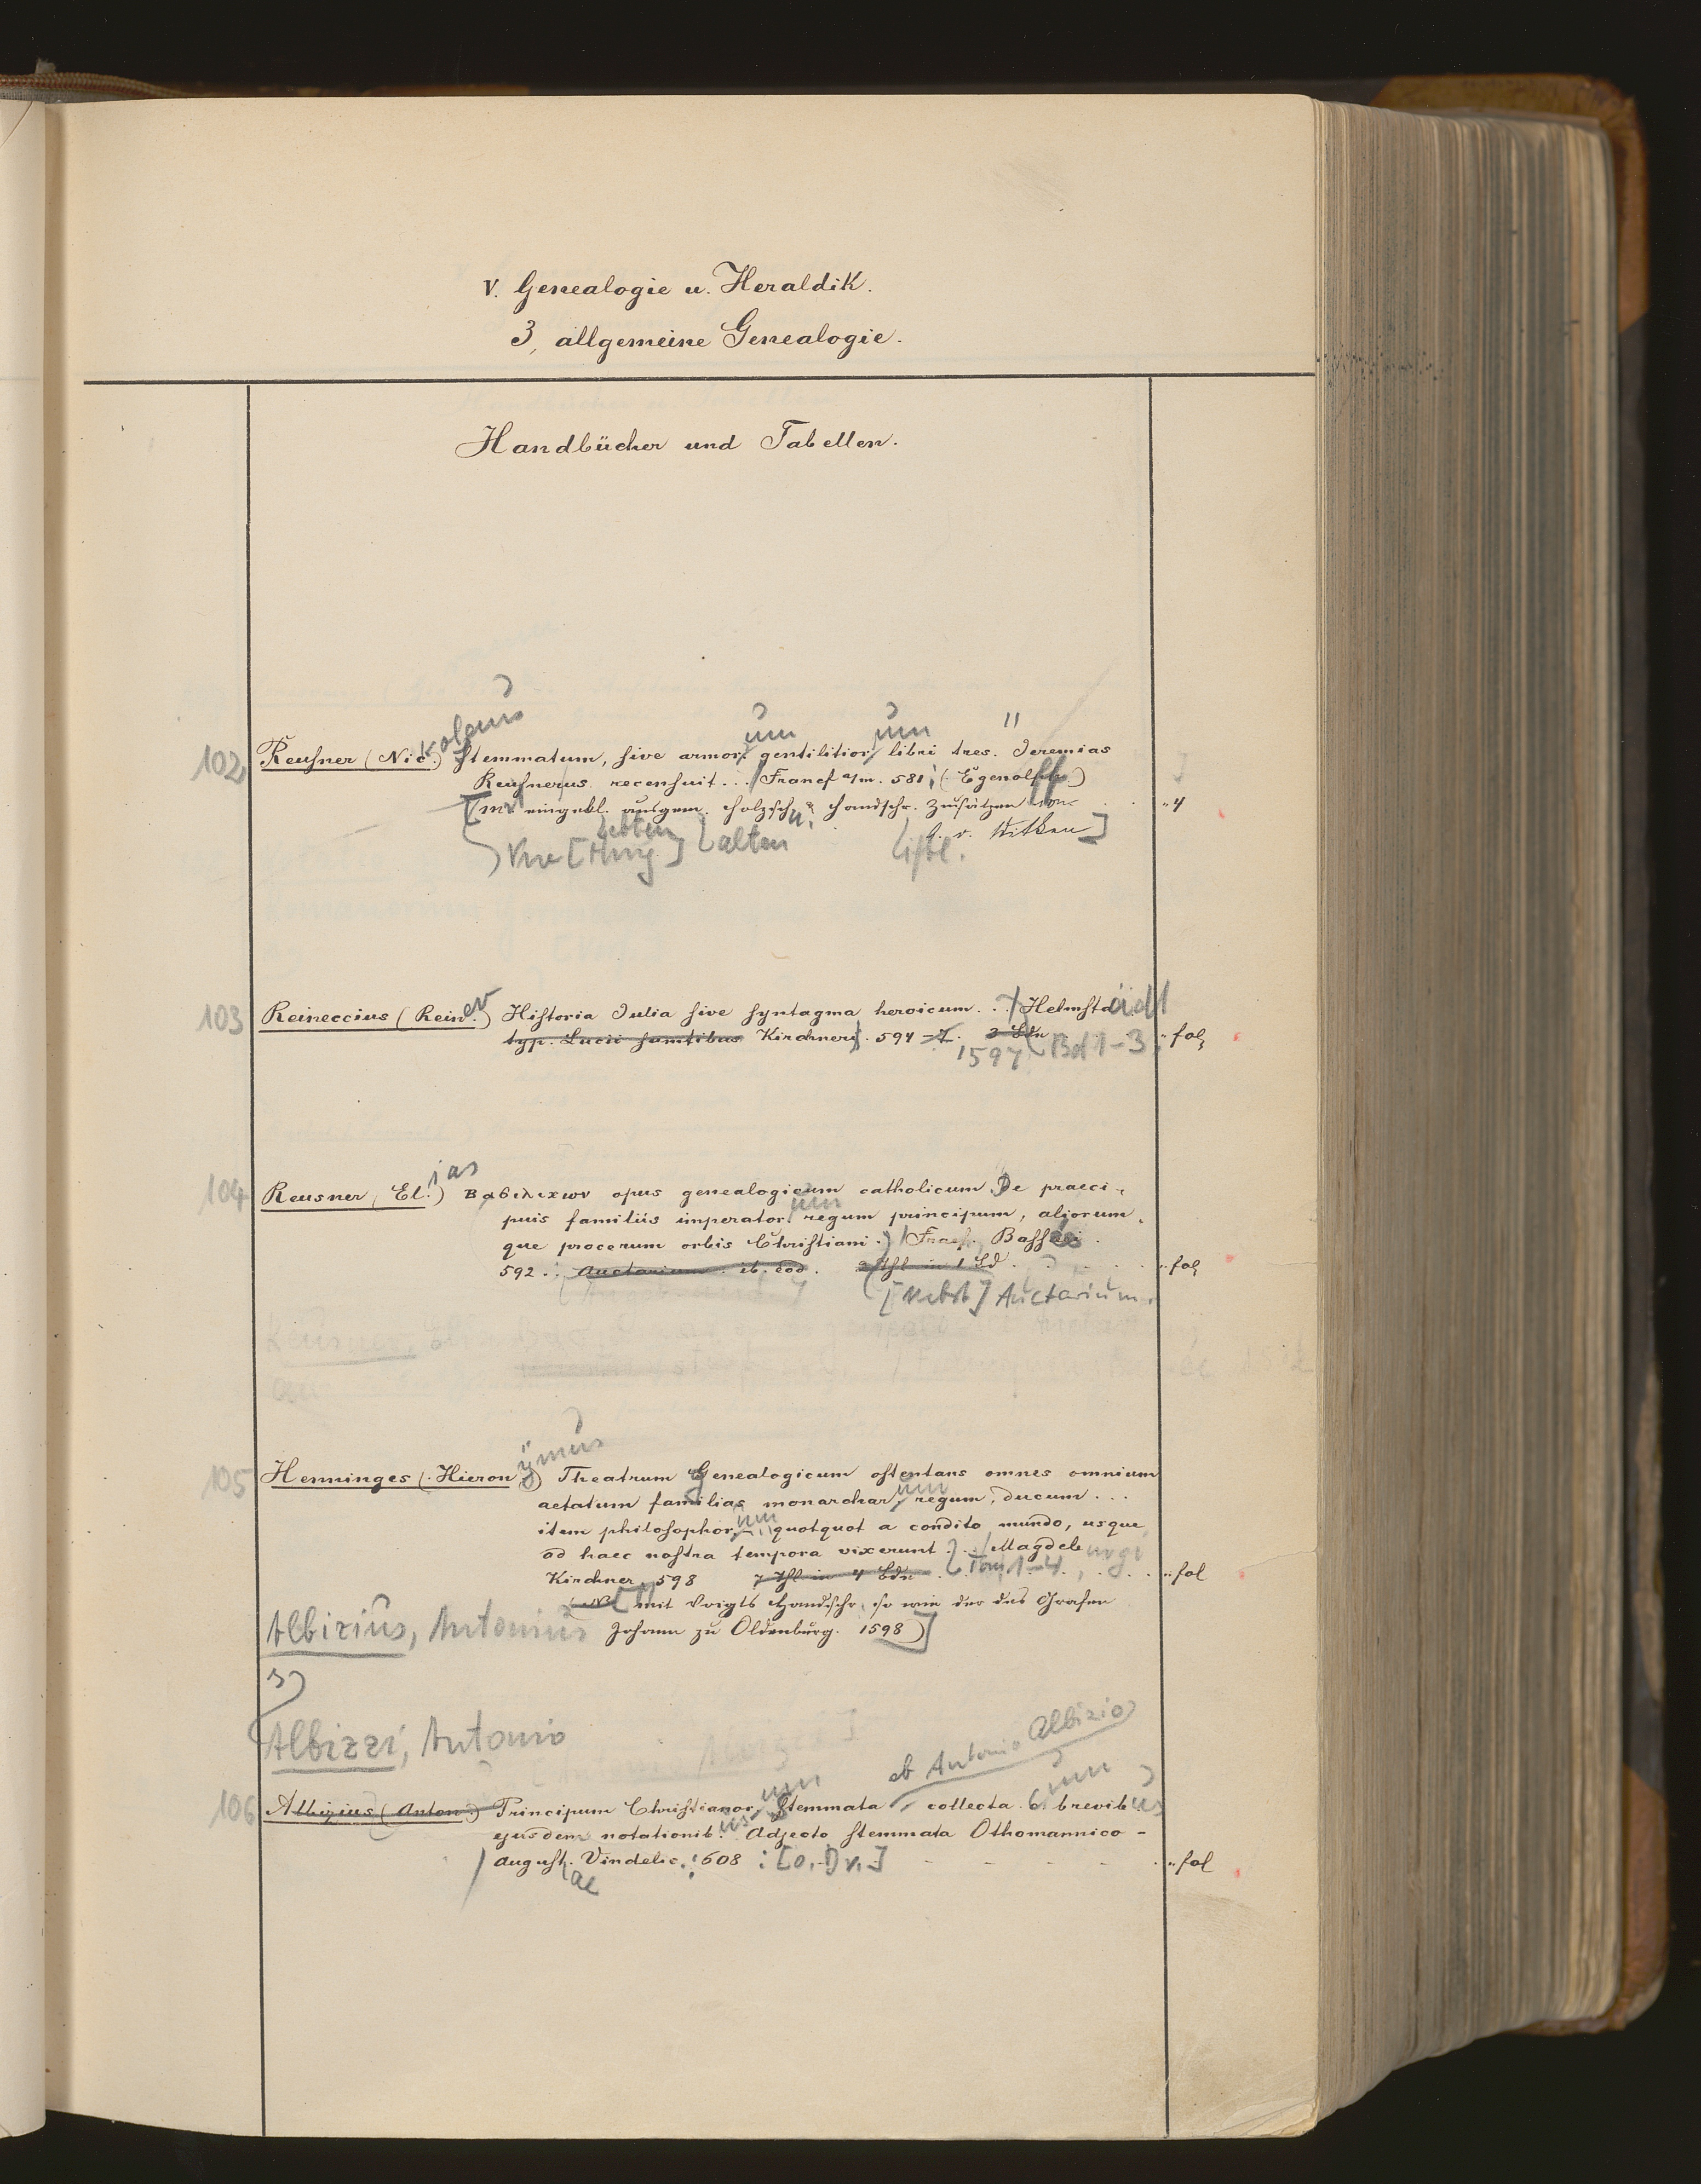 V. Genealogie u. Heraldik.
3, allgemeine Genealogie.
Handbücher und Tabellen.
102 Reusner (Nic.)kolaus Stemmatum, sive armor.um gentilitior.um libri tres. Jeremias
Reusnerus recensuit... Francf a/m. 581; (Egenolff)
[mit eingekl. ausgem. Holzschn. u. handschr. Zusätzen von "4
v. Witken]
alten
103 Reineccius (Reiner) Historia Julia sive syntagma heroicum... Helmstaedt
typ. Lucii sumtibus Kirchneri. 594-7. 3 Bdn "fol
1597 Bd 1-3
104 Reusner, El.ias) Βασιλικων opus genealogicum catholicum De praeci-
puis familiis imperator.um regum principum, aliorum-
que procerum orbis Christiani.) Francf. Bassaei
592.: Auctarium. ib. eod. 2 Thl in 1 Bd "fol
[nebst] Auctarium.
105 Henninges (Hieronymus) Theatrum Genealogicum ostentans omnes omnium
aetatum familias monarchar.um regum, ducum...
item philosophor.um quotquot a condito mundo, usque
ad haec nostra tempora vixerunt... Magdeburgi
Kirchner, 598 7 Thl in 4 Bdn Tom. 1-4, "fol
mit Voigts Handschr, so wie der des Grafen
Johann zu Oldenburg. 1598)]
Albizius, Antonius
s)
Albizzi, Antonio
ab Antonio Albizio
106 Albizius (Anton.) Principum Christianor.um Stemmata, collecta c.um brevibus
ejusdem notationib.us Adjecto stemmata Othomannico -
August.ae Vindelic.: 608 : [o. Dr.] "fol